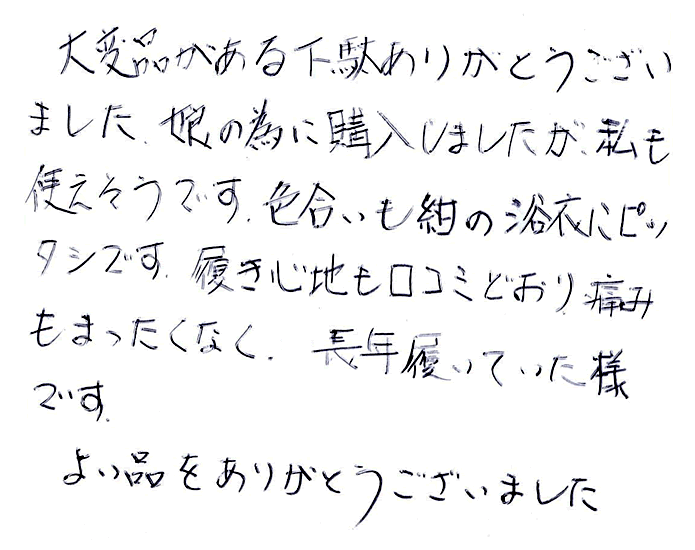 大変品がある下駄ありがとうござい
ました、娘の為に購入しましたが、私も
使えそうです。色合いも紺の浴衣にピッ
タシです。履き心地も口コミどおり痛み
もまったくなく、長年履いていた様
です。
よい品をありがとうございました